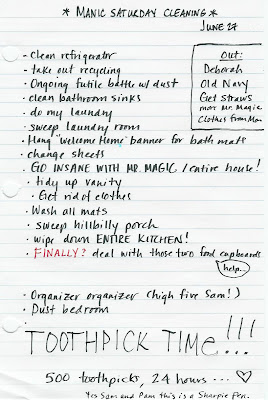 * MANIC SATURDAY CLEANING *
JUNE 27
- clean refrigerator
- take out recycling
- Ongoing futile battle w/ dust
- clean bathroom sinks
- do my laundry
- sweep laundry room
- Hang "Welcome Home" banner for bath mats
- change sheets
- GO INSANE WITH MR. MAGIC / entire house!
- tidy up vanity
- Get rid of clothes
- Wash all mats
- sweep hillbilly porch
- wipe down ENTIRE KITCHEN!
- FINALLY? deal with those two food cupboards
help...
- Organizer organizer (high five Sam!)
- Dust bedroom
-
TOOTHPICK TIME!!!
500 toothpicks, 24 hours... ♡
Yes Sam and Pam this is a Sharpie Pen.
Out:
Deborah
Old Navy
Get Straws
more Mr. Magic
Clothes from Mom